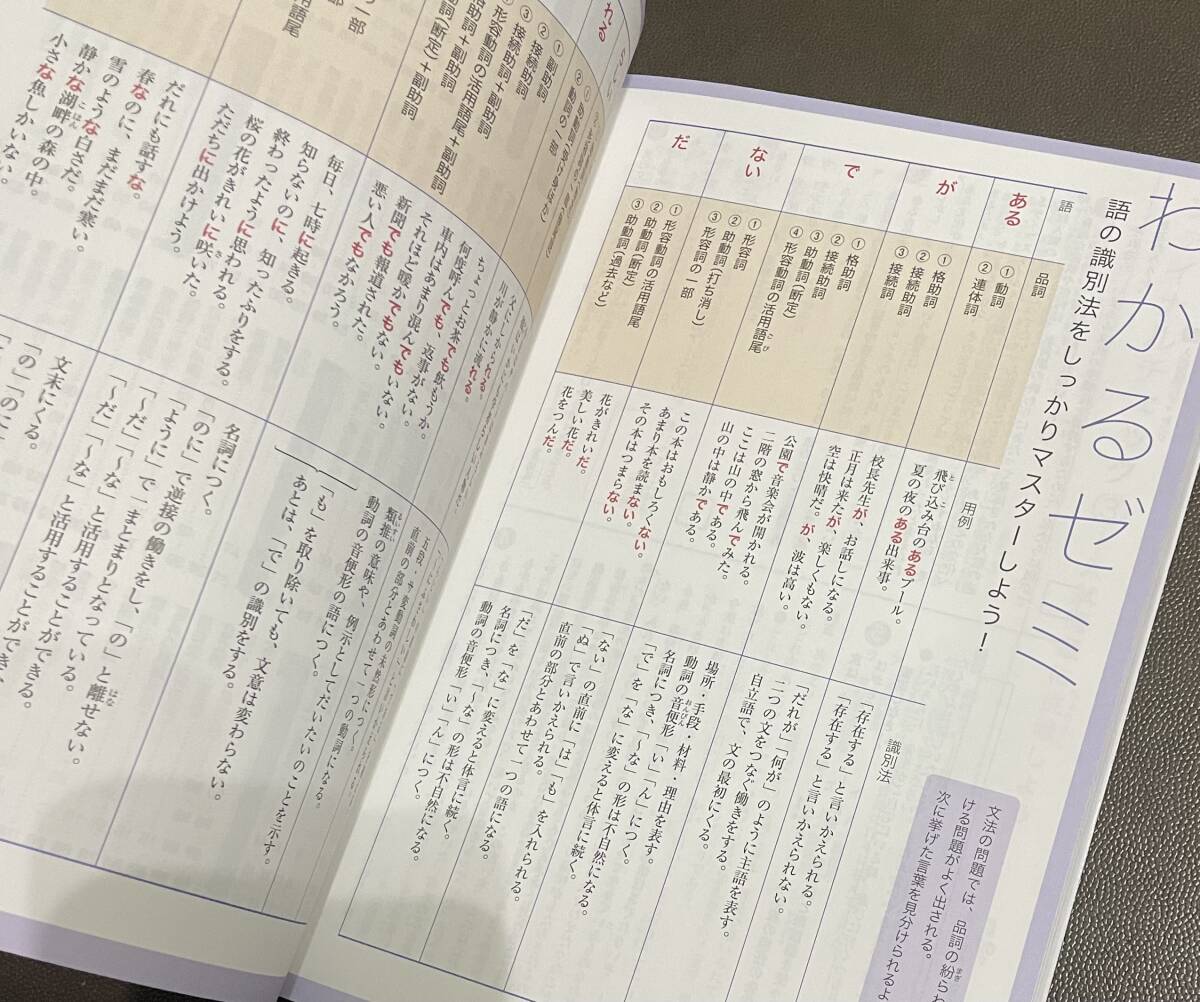 わかるゼミ
語の識別法をしっかりマスターしよう！
文法の問題では、品詞の紛らわ
ける問題がよく出される。
次に挙げた言葉を見分けられるよ
語
品詞
用例
識別法
ある
①動詞
②連体詞
飛び込み台のあるプール。
夏の夜のある出来事。
「存在する」と言いかえられる。
「存在する」と言いかえられない。
が
①格助詞
②接続助詞
③接続詞
校長先生が、お話しになる。
正月は来たが、楽しくもない。
空は快晴だ。が、波は高い。
「だれが」「何が」のように主語を表す。
二つの文をつなぐ働きをする。
自立語で、文の最初にくる。
で
①格助詞
②接続助詞
③助動詞(断定)
④形容動詞の活用語尾
公園で音楽会が開かれる。
二階の窓から飛んでみた。
ここは山の中である。
山の中は静かである。
場所・手段・材料・理由を表す。
動詞の音便形「い」「ん」につく。
名詞につき、「～な」の形は不自然になる。
「で」を「な」に変えると体言に続く。
ない
①形容詞
②助動詞(打ち消し)
③形容詞の一部
この本はおもしろくない。
あまり本を読まない。
その本はつまらない。
「ない」の直前に「は」「も」を入れられる。
「ぬ」で言いかえられる。
直前の部分とあわせて一つの語になる。
だ
①形容動詞の活用語尾
②助動詞(断定)
③助動詞(過去など)
花がきれいだ。
美しい花だ。
花をつんだ。
「だ」を「な」に変えると体言に続く。
名詞につき、「～な」の形は不自然になる。
動詞の音便形「い」「ん」につく。
れる
②動詞の一部
川が静かに流れる。
五段・サ変動詞の未然形につく。
直前の部分とあわせて一つの動詞になる。
①副助詞
②接続助詞
③接続助詞＋副助詞
格助詞＋副助詞
形容動詞の活用語尾＋副助詞
助動詞(断定)＋副助詞
ちょっとお茶でも飲もうか。
何度呼んでも、返事がない。
車内はあまり混んでもいない。
それほど暖かでもない。
新聞でも報道された。
悪い人でもなかろう。
類推の意味や、例示としてだいたいのことを示す。
動詞の音便形の語につく。
「も」を取り除いても、文意は変わらない。
あとは、「で」の識別をする。
毎日、七時に起きる。
知らないのに、知ったふりをする。
終わったように思われる。
桜の花がきれいに咲いた。
ただちに出かけよう。
名詞につく。
「のに」で逆接の働きをし、「の」と離せない。
「ように」で一まとまりとなっている。
「～だ」「～な」と活用することができる。
だれにも話すな。
春なのに、まだまだ寒い。
雪のような白さだ。
静かな湖畔の森の中。
小さな魚しかいない。
文末にくる。